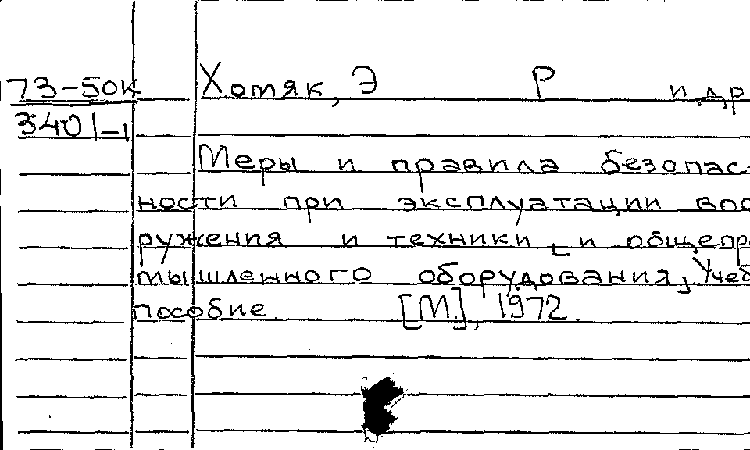 73-50к Хотяк, Э Р и др
3401-1
Меры и правила безопас-
ности при эксплуатации воо
ружения и техники и общепр
мышленного оборудования, Учеб
пособие. [М.], 1972.